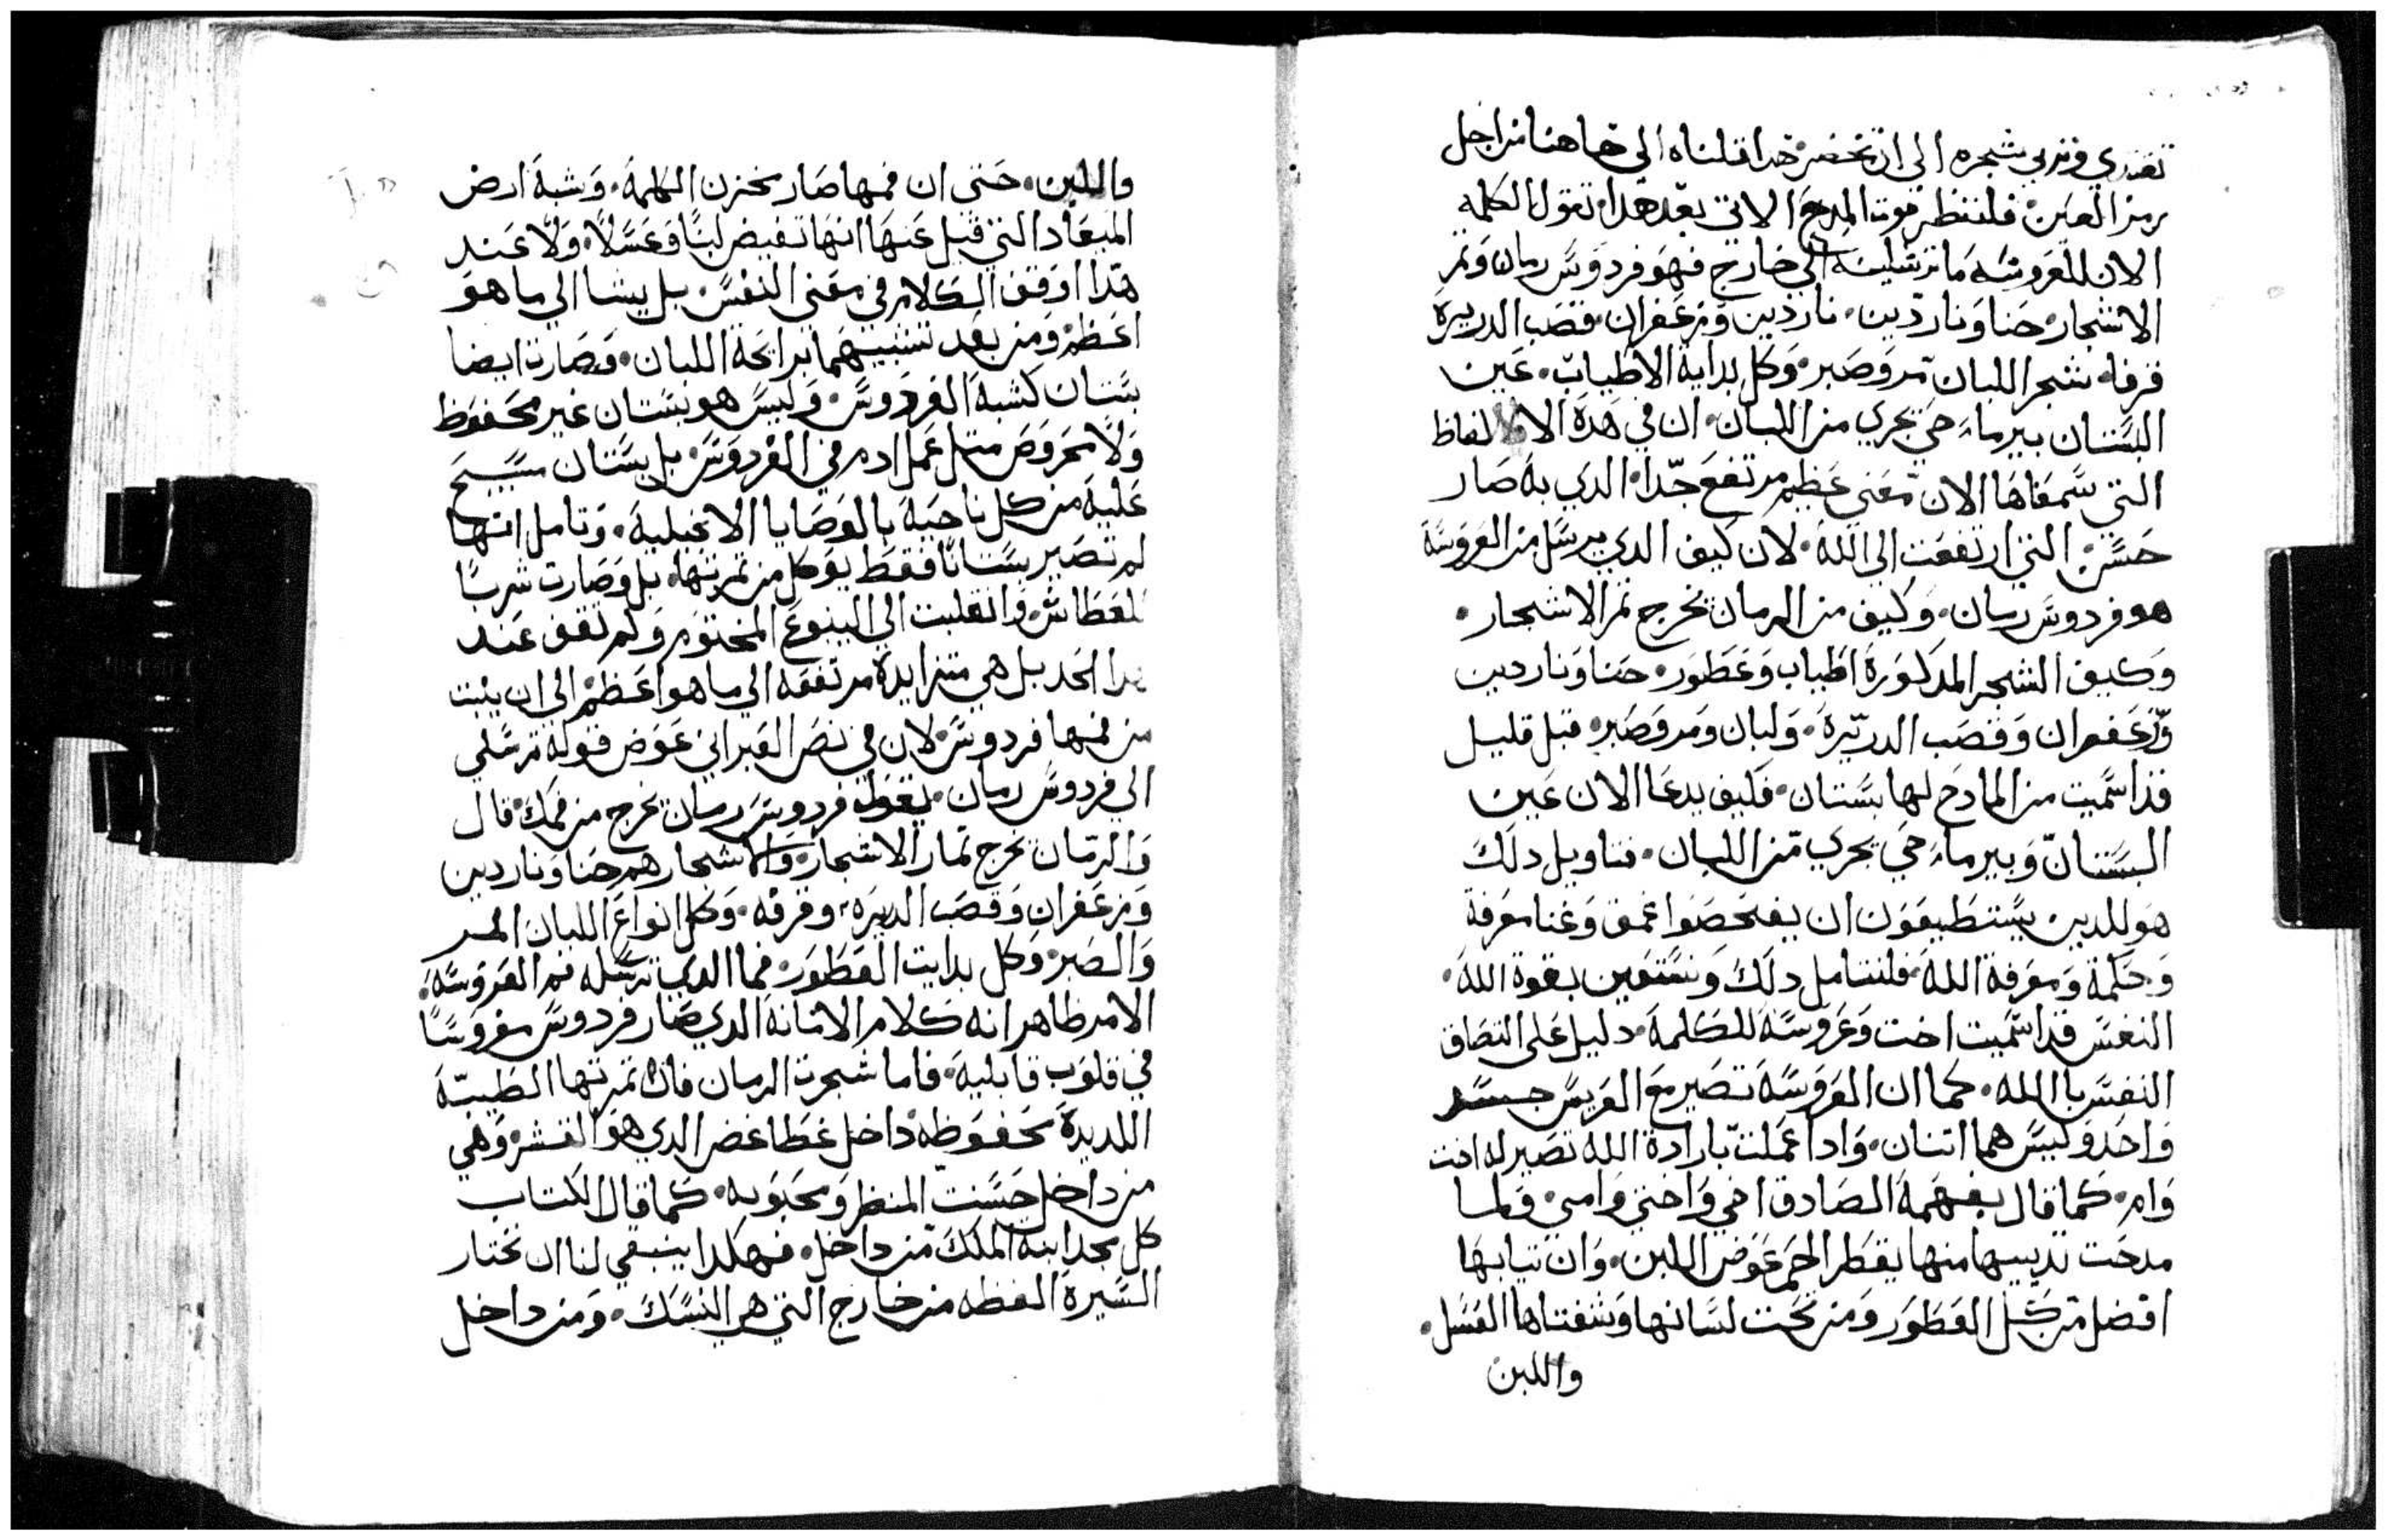 تغتدي وتربي شجره الى ان تخضر هدا قلناه الي هاهنا من اجل
رمز العين فلننظر قوت المدح الاتي بعد هدا تقول الكلمه
الان للعروسه ما ترسلينه الي خارج فهو فردوس رمان وتمر
الاشجار حنا وناردين ناردين وزعفران قصب الدريره
قرفه شجر اللبان مر وصبر وكل بداية الاطياب عين
البستان بير ماء حي تجري من اللبان ان في هده الالفاظ
التي سمعناها الان معني عظيم مرتفع جدا الدي به صار
حسن التي ارتفعت الى الله لان كيف الدي يرسل من العروسه
هو فردوس رمان وكيف من الرمان تخرج تمر الاشجار
وكيف الشجر المدكوره اطياب وعطور حنا وناردين
وزعفران وقصب الدريره ولبان ومر وصبر قبل قليل
قد اسميت من المادح لها بستان فكيف يدعا الان عين
البستان وبير ماء حي يجري من اللبان فتاويل دلك
هو للدين يستطيعون ان يفتحصوا عمق وغنا معرفة
وحكمة ومعرفة الله فلنتامل دلك ونستعين بقوة الله
النفس قد اسميت اخت وعروسه للكلمه دليل على التصاق
النفس بالله كما ان العروسه تصير مع العريس جسد
واحد وليس هما اتنان وادا عملت بارادة الله تصير له اخت
وام كما قال بفهمه الصادق اخي واختي وامي ولما
مدحت تدييها منها يقطر الخمر عوض اللبن وان تيابها
افضل من كل العطور ومن تحت لسانها وشفتاها العسل
واللبن
واللبن حتى ان فمها صار مخزن الكلمه وشبه ارض
الميعاد التي قيل عنها انها تفيض لبنا وعسلا ولا عند
هدا اوقف الكلام في معنى النفس بل يشا الي ما هو
اعظم ومن بعد تشبيههما برايحة اللبان وصارت ايضا
بستان كشبه الفردوس وليس هو بستان غير محفوظ
ولا محروص متل عمل ادم في الفردوس بل بستان مسيج
عليه من كل ناحيه بالوصايا الانجيلية وتامل انها
لم تصير بستانا فقط يوكل من تمرتها بل وصارت شربا
للعطاش وانقلبت الي الينبوع المختوم ولم تقف عند
هدا الحد بل هي متزايده مرتفعه الي ما هو اعظم الي ان ينبت
من فمها فردوس لان في نص العبراني عوض قوله ترسلي
الي فردوس رمان يقول فردوس رمان يخرج من فمك قال
والرمان تخرج تمار الاشجار والاشجار هم حنا وناردين
وزعفران وقصب الديره وقرفه وكل انواع اللبان المر
والصبر وكل بدايت العطور فما الدي ترسله فم العروسه
الامر ظاهر انه كلام الامانه الدي صار فردوس مغروسا
في قلوب قابليه فاما شجرت الرمان فان تمرتها الطيبه
اللديده محفوظه داخل غطا غض الدي هو القشر وهي
من داخل حسنت المنظر ومحبوبه كما قال الكتاب
كل مجد ابنه الملك من داخل فهكدا ينبغي لنا ان نختار
السيرة الفظه من خارج التي هي النسك ومن داخل